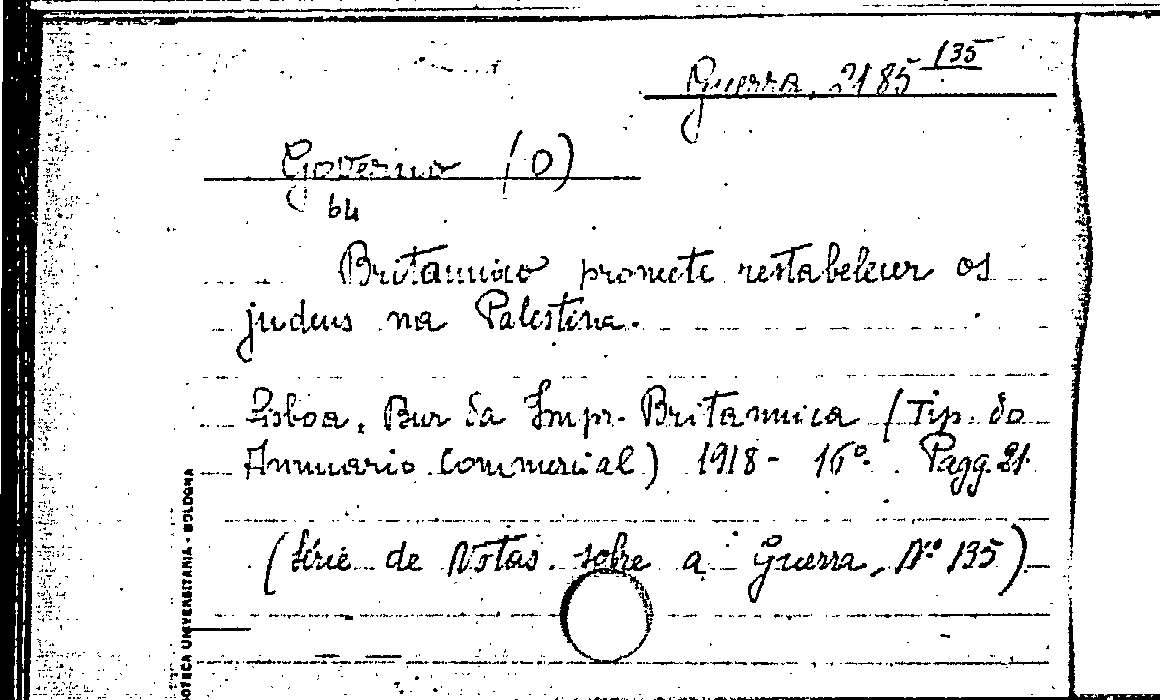 Guerra. 2185 135
Governo (O)
64
Britannico promete restabelecer os
judeus na Palestina.
Lisboa, Bur da Impr. Britannica (Tip. do
Annuario Commercial) 1918 - 16º. Pagg. 21.
(Série de Notas sobre a Guerra, Nº 135)
OTECA UNIVERSITARIA - BOLOGNA